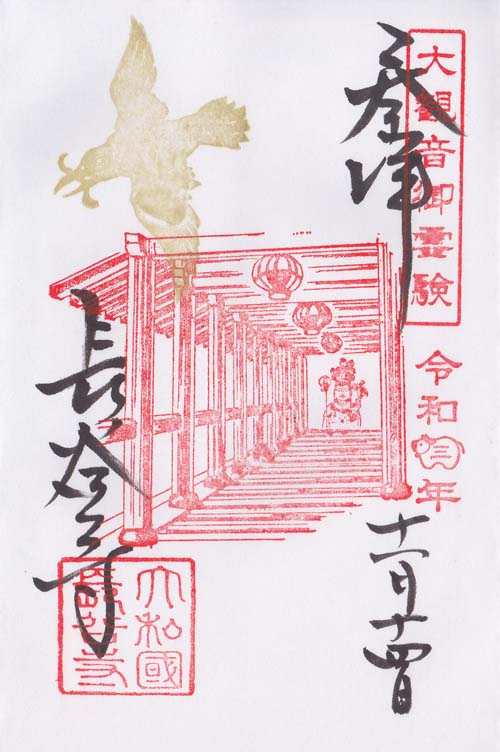 大観音御霊験
奉拝
令和年
十一月十四日
長谷寺
大和國